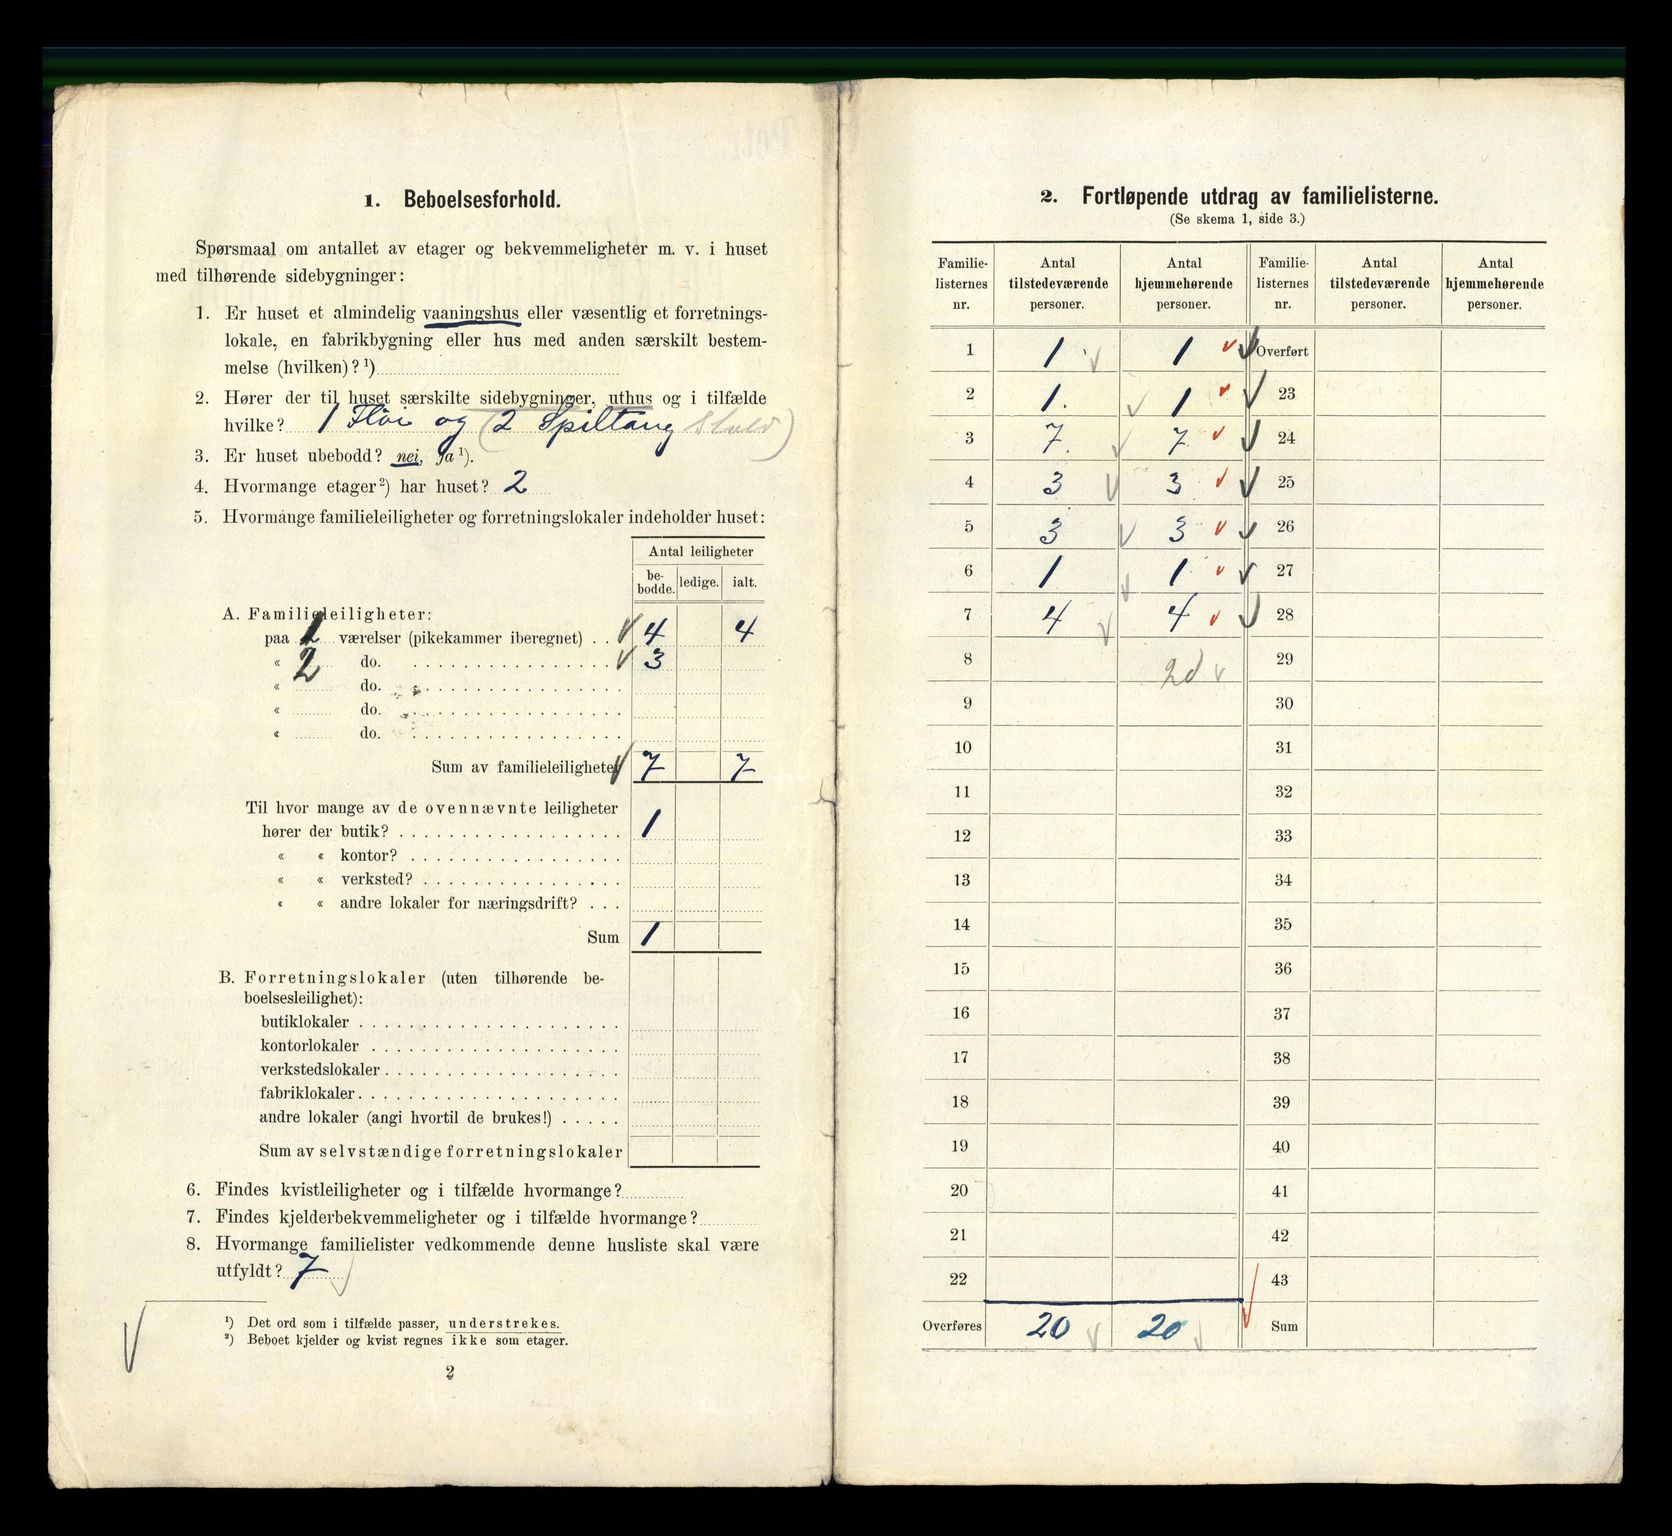 1. Beboelsesforhold.
Spørsmaal om antallet av etager og bekvemmeligheter m. v. i huset
med tilhørende sidebygninger:
1. Er huset et almindelig vaaningshus eller væsentlig et forretnings-
lokale, en fabrikbygning eller hus med anden særskilt bestem-
melse (hvilken)? ¹)
2. Hører der til huset særskilte sidebygninger, uthus og i tilfælde
hvilke? 1 Fløi og (2 Spiltaug Stald)
3. Er huset ubebodd? nei, ja ¹).
4. Hvormange etager ²) har huset? 2
5. Hvormange familieleiligheter og forretningslokaler indeholder huset:
Antal leiligheter
be-
bodde. ledige. ialt.
A. Familieleiligheter:
paa 1 værelser (pikekammer iberegnet) . . 4 4
« 2 do. 3
« do.
« do.
« do.
Sum av familieleiligheter 7 7
Til hvor mange av de ovennævnte leiligheter
hører der butik? 1
« « kontor?
« « verksted?
« « andre lokaler for næringsdrift? . . .
Sum 1
B. Forretningslokaler (uten tilhørende be-
boelsesleilighet):
butiklokaler
kontorlokaler
verkstedslokaler
fabriklokaler
andre lokaler (angi hvortil de brukes!)
Sum av selvstændige forretningslokaler
6. Findes kvistleiligheter og i tilfælde hvormange?
7. Findes kjelderbekvemmeligheter og i tilfælde hvormange?
8. Hvormange familielister vedkommende denne husliste skal være
utfyldt? 7
¹) Det ord som i tilfælde passer, understrekes.
²) Beboet kjelder og kvist regnes ikke som etager.
2
2. Fortløpende utdrag av familielisterne.
(Se skema 1, side 3.)
Familie- Antal Antal Familie- Antal Antal
listernes tilstedeværende hjemmehørende listernes tilstedeværende hjemmehørende
nr. personer. personer. nr. personer. personer.
1 1 1 Overført
2 1. 1 23
3 7. 7 24
4 3 3 25
5 3 3 26
6 1 1 27
7 4 4 28
8 20 29
9 30
10 31
11 32
12 33
13 34
14 35
15 36
16 37
17 38
18 39
19 40
20 41
21 42
22 43
Overføres 20 20 Sum